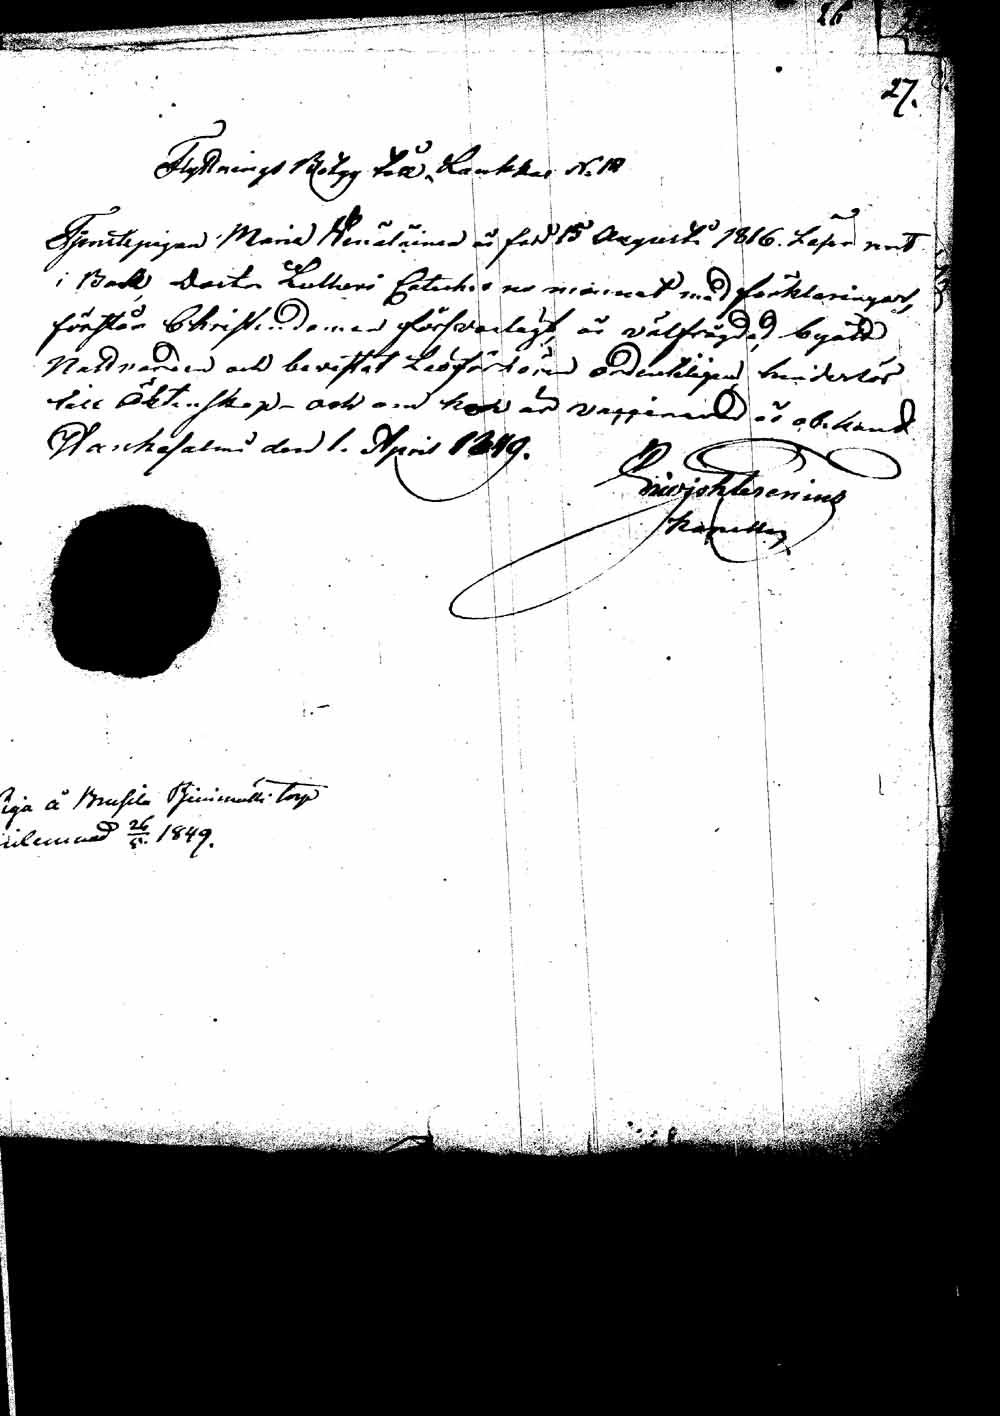 26
27.
Flyttnings Betyg till Laukkas N. 18
Tjenstepigan Maria Venäläinen är född 15 Augusti 1816. Läser rent
i Bok, Doctor Lutheri Cateches ur minnet med förklaringar,
förstår Christendomen försvarligt, är välfrägdad, begått
Nattvarden och bevistat Läsförhören ordentligen, hinderlös
till Äktenskap och om hon är vaccinerad är obekant
Hankasalmi den 1. April 1849.
Kapellan
Piga å Torp
26/5. 1849.